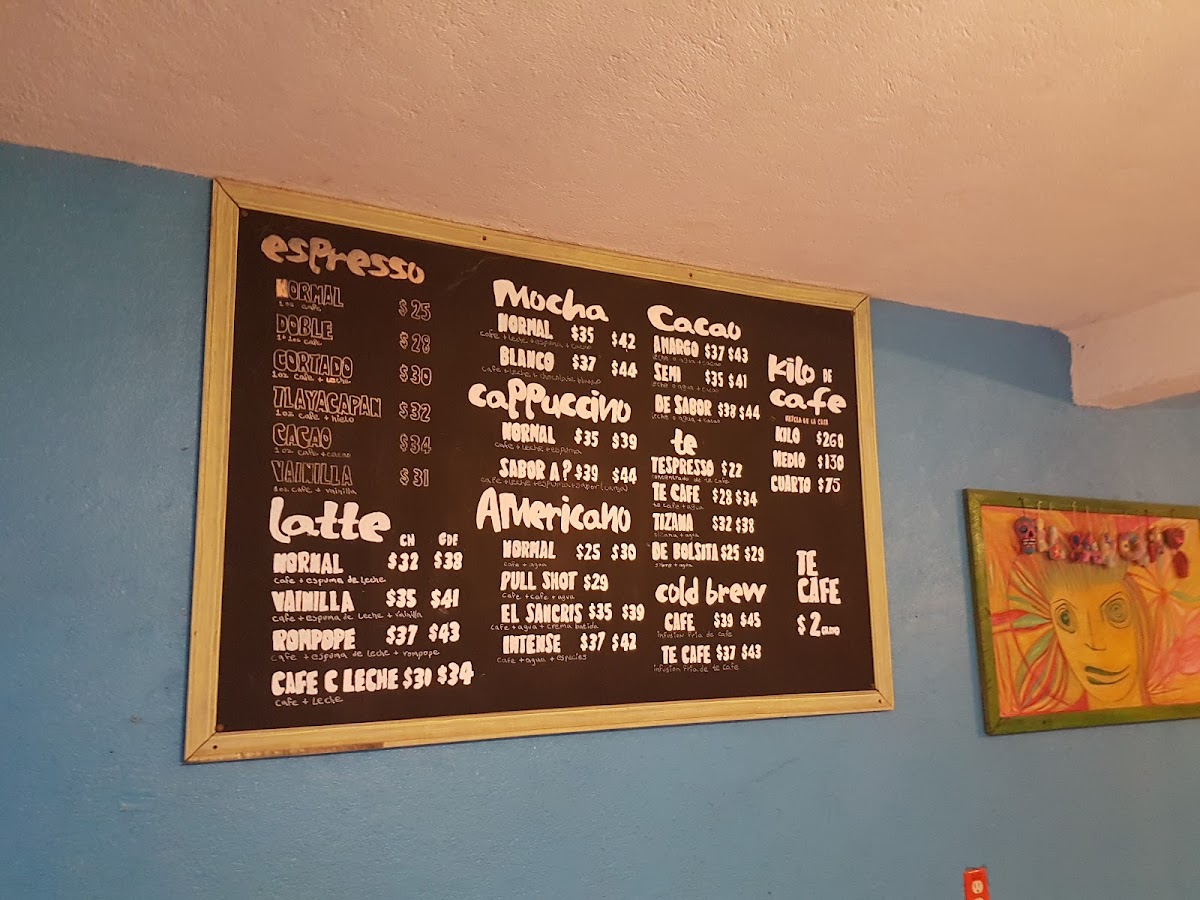 espresso
NORMAL $25
1 oz cafe
DOBLE $28
CORTADO $30
1 oz cafe + leche
TLAYACAPAN $32
1 oz cafe + hielo
CACAO $34
1 oz cafe + cacao
VAINILLA $31
1 oz cafe + vainilla
latte CH GDE
NORMAL $32 $38
cafe + espuma de leche
VAINILLA $35 $41
cafe + espuma de leche + vainilla
ROMPOPE $37 $43
cafe + espuma de leche + rompope
CAFE C LECHE $30 $34
cafe + leche
Mocha
NORMAL $35 $42
cafe + leche + espuma + cacao
BLANCO $37 $44
cafe + leche + chocolate blanco
cappuccino
NORMAL $35 $39
cafe + leche + espuma
SABOR A ? $39 $44
cafe + leche + espuma + sabor
Americano
NORMAL $25 $30
cafe + agua
PULL SHOT $29
cafe + cafe + agua
EL SANGRIS $35 $39
cafe + agua + crema batida
INTENSE $37 $42
cafe + agua + especies
Cacao
AMARGO $37 $43
leche o agua + cacao
SEMI $35 $41
leche o agua + cacao
DE SABOR $38 $44
leche o agua + cacao
te
TESPRESSO $22
concentrado de te cafe
TE CAFE $28 $34
te cafe + agua
TIZANA $32 $38
tizana + agua
DE BOLSITA $25 $29
cold brew
CAFE $39 $45
infusion fria de cafe
TE CAFE $37 $43
infusion fria de te cafe
Kilo DE
cafe
MEZCLA DE LA CASA
KILO $260
MEDIO $130
CUARTO $75
TE
CAFE
$2 GRAMO